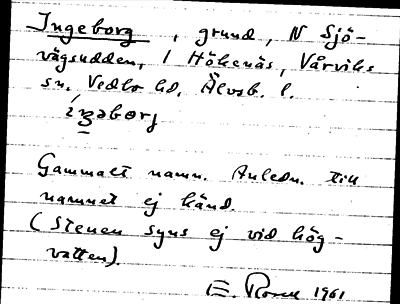 Ingeborg, grund, N Sjö-
vägsudden, l Hökenäs, Vårviks
sn. Vedbo hd, Älvsb. l.
íŋəborj
Gammalt namn. Anledn. till
namnet ej känd.
(Stenen syns ej vid hög-
vatten).
E. 1961